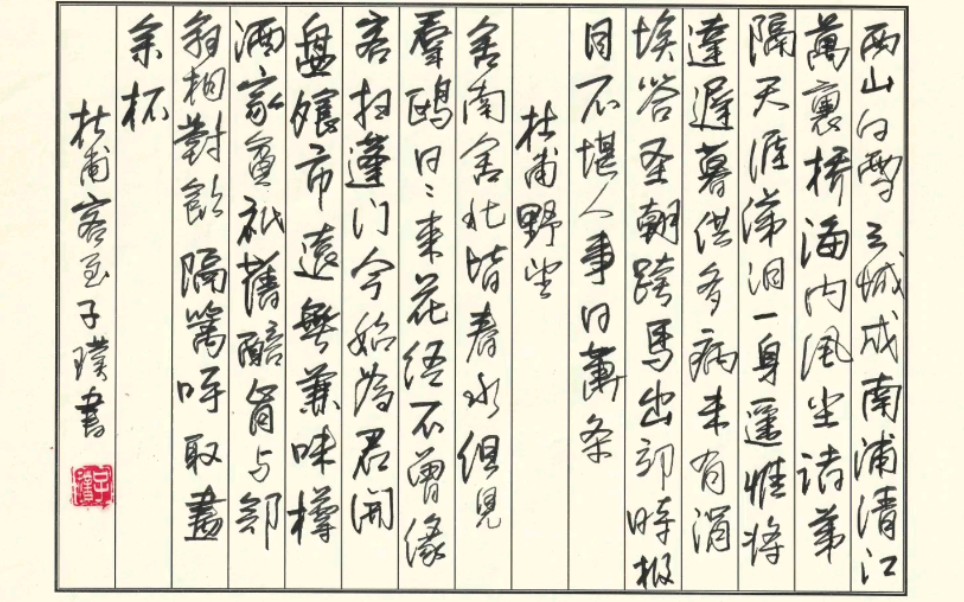 西山白雪三城戍南浦清江
萬裏橋海内风尘諸弟
隔天涯涕泪一身遥惟将
達遲暮供多病未有涓
埃答圣朝跨馬出郊時極
目不堪人事日蕭条
杜甫野望
舍南舍北皆春水但見
羣鷗日々来花徑不曾緣
客扫蓬门今始為君開
盤飧市遠無兼味樽
酒家貧祇舊醅肯与鄰
翁相對飲隔籬呼取盡
余杯
杜甫客至子璞書